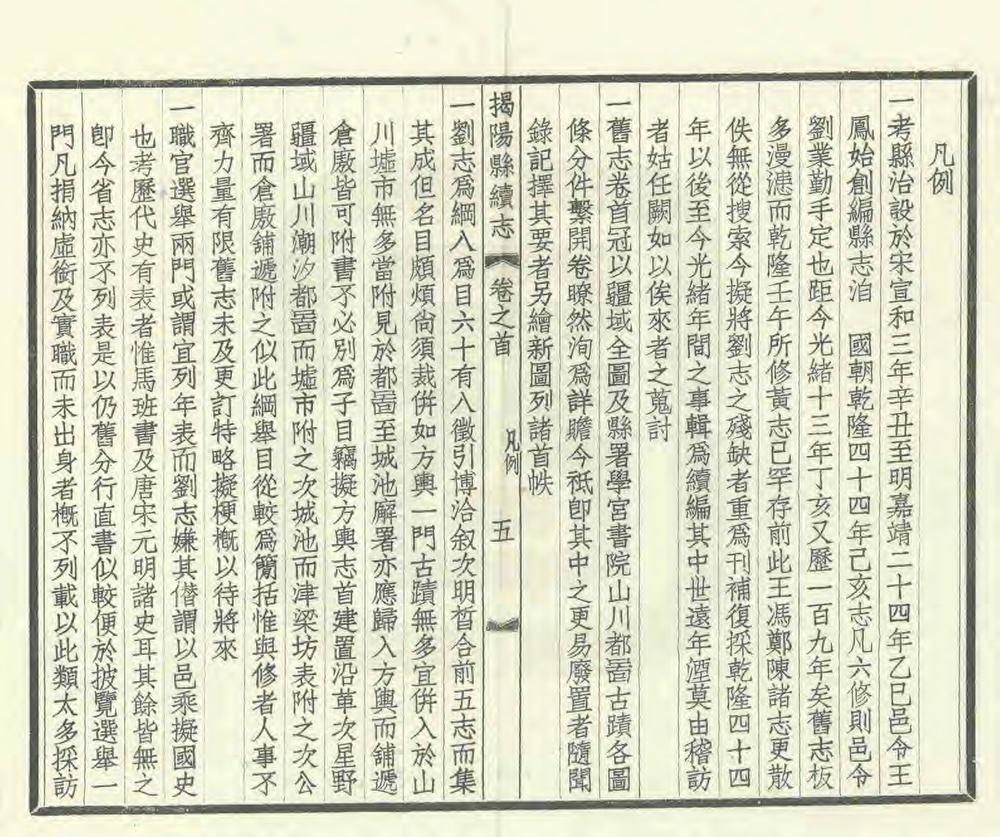 凡例
一考縣治設於宋宣和三年辛丑至明嘉靖二十四年乙巳邑令王
鳳始創編縣志洎　國朝乾隆四十四年己亥志凡六修則邑令
劉業勤手定也距今光緒十三年丁亥又歷一百九年矣舊志板
多漫漶而乾隆壬午所修黃志已罕存前此王馮鄭陳諸志更散
佚無從搜索今擬將劉志之殘缺者重爲刊補復採乾隆四十四
年以後至今光緒年間之事輯爲續編其中世遠年湮莫由稽訪
者姑任闕如以俟來者之蒐討
一舊志卷首冠以疆域全圖及縣署學宮書院山川都啚古蹟各圖
條分件繫開卷瞭然洵爲詳贍今祗卽其中之更易廢置者隨聞
錄記擇其要者另繪新圖列諸首帙
揭陽縣續志　卷之首　凡例　五
一劉志爲綱八爲目六十有八徵引博洽叙次明晳合前五志而集
其成但名目頗煩尙須裁併如方輿一門古蹟無多宜併入於山
川墟市無多當附見於都啚至城池廨署亦應歸入方輿而舖遞
倉廒皆可附書不必別爲子目竊擬方輿志首建置沿革次星野
疆域山川潮汐都啚而墟市附之次城池而津梁坊表附之次公
署而倉廒舖遞附之似此綱舉目從較爲簡括惟與修者人事不
齊力量有限舊志未及更訂特略擬梗槪以待將來
一職官選舉兩門或謂宜列年表而劉志嫌其僭謂以邑乘擬國史
也考歷代史有表者惟馬班書及唐宋元明諸史耳其餘皆無之
卽今省志亦不列表是以仍舊分行直書似較便於披覽選舉一
門凡捐納虛銜及實職而未出身者槪不列載以此類太多採訪